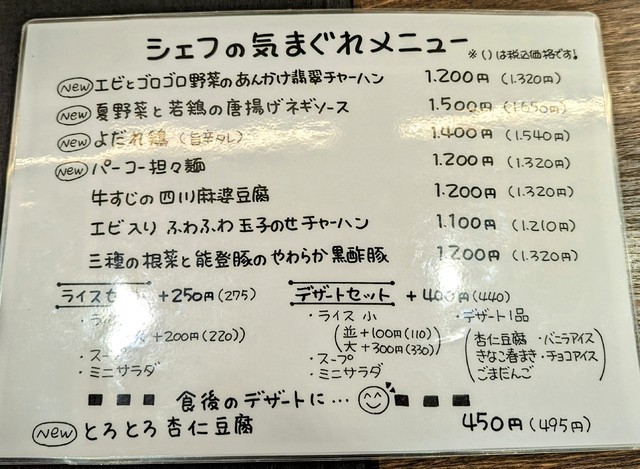 シェフの気まぐれメニュー
※()は税込価格です!
new エビとゴロゴロ野菜のあんかけ翡翠チャーハン 1.200円 (1.320円)
new 夏野菜と若鶏の唐揚げネギソース 1.500円 (1.650円)
new よだれ鶏 (旨辛タレ) 1.400円 (1.540円)
new パーコー担々麺 1.200円 (1.320円)
牛すじの四川麻婆豆腐 1.200円 (1.320円)
エビ入り ふわふわ玉子のせチャーハン 1.100円 (1.210円)
三種の根菜と能登豚のやわらか黒酢豚 1.200円 (1.320円)
ライスセ +250円(275)
+200円(220))
・スープ
・ミニサラダ
デザートセット +400円(440)
・ライス 小
(並+100円(110)
大+300円(330))
・スープ
・ミニサラダ
・デザート1品
(杏仁豆腐 ・バニラアイス
きなこ春まき ・チョコアイス
ごまだんご)
食後のデザートに…
new とろとろ杏仁豆腐 450円(495円)